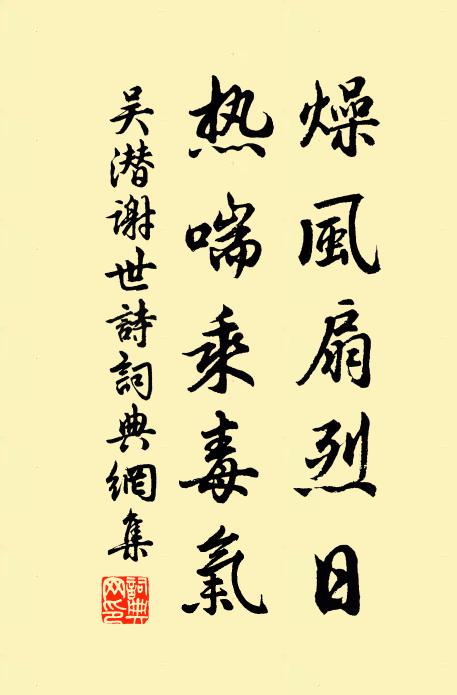 燥風扇烈日
热喘乘毒氣
吴潜谢世詩詞典網集
詞典網印